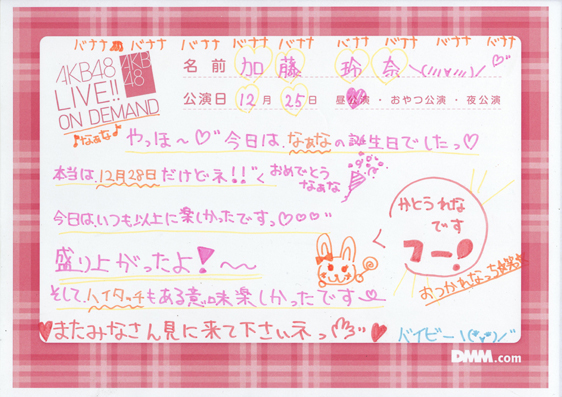 バナナ バナナ バナナ バナナ バナナ バナナ バナナ バナナ バナナ
AKB48
LIVE!!
ON DEMAND
AKB
48
名前 加藤 玲奈
公演日 12月25日 昼公演・おやつ公演・夜公演
♪なぁな♪
やっほ〜♡今日は、なぁなの誕生日でしたっ♡
本当は12月28日だけどネ!!
おめでとう
なぁな
今日は、いつも以上に楽しかったですっ♡♡♡
盛り上がったよ!〜〜
そして、ハイタッチもある意味楽しかったです
♥またみなさん見に来て下さいネっ
かとうれな
です
フー!
おつかれなっち
ベイビー
DMM.com